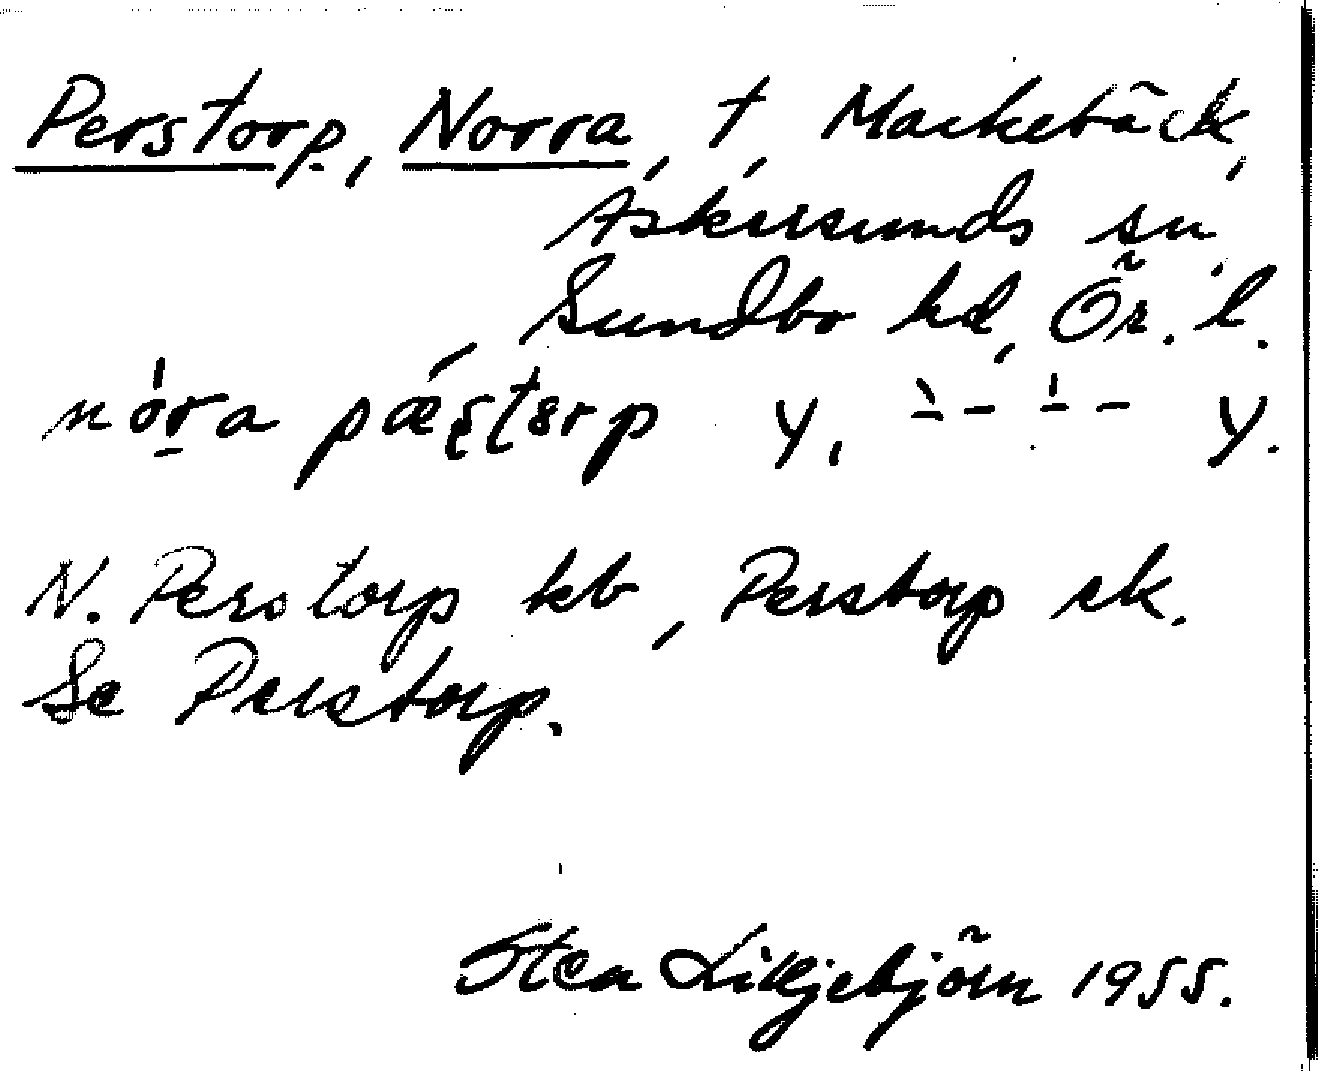 Perstorp, Norra, t, Markebäck,
Askersunds sn,
Sundbo hd, Ör. l.
nóra pæstorp y, ̀- - ́- - y.
N. Perstorp kb, Perstorp ek.
Se Perstorp.
Sten Liljebjörn 1955.